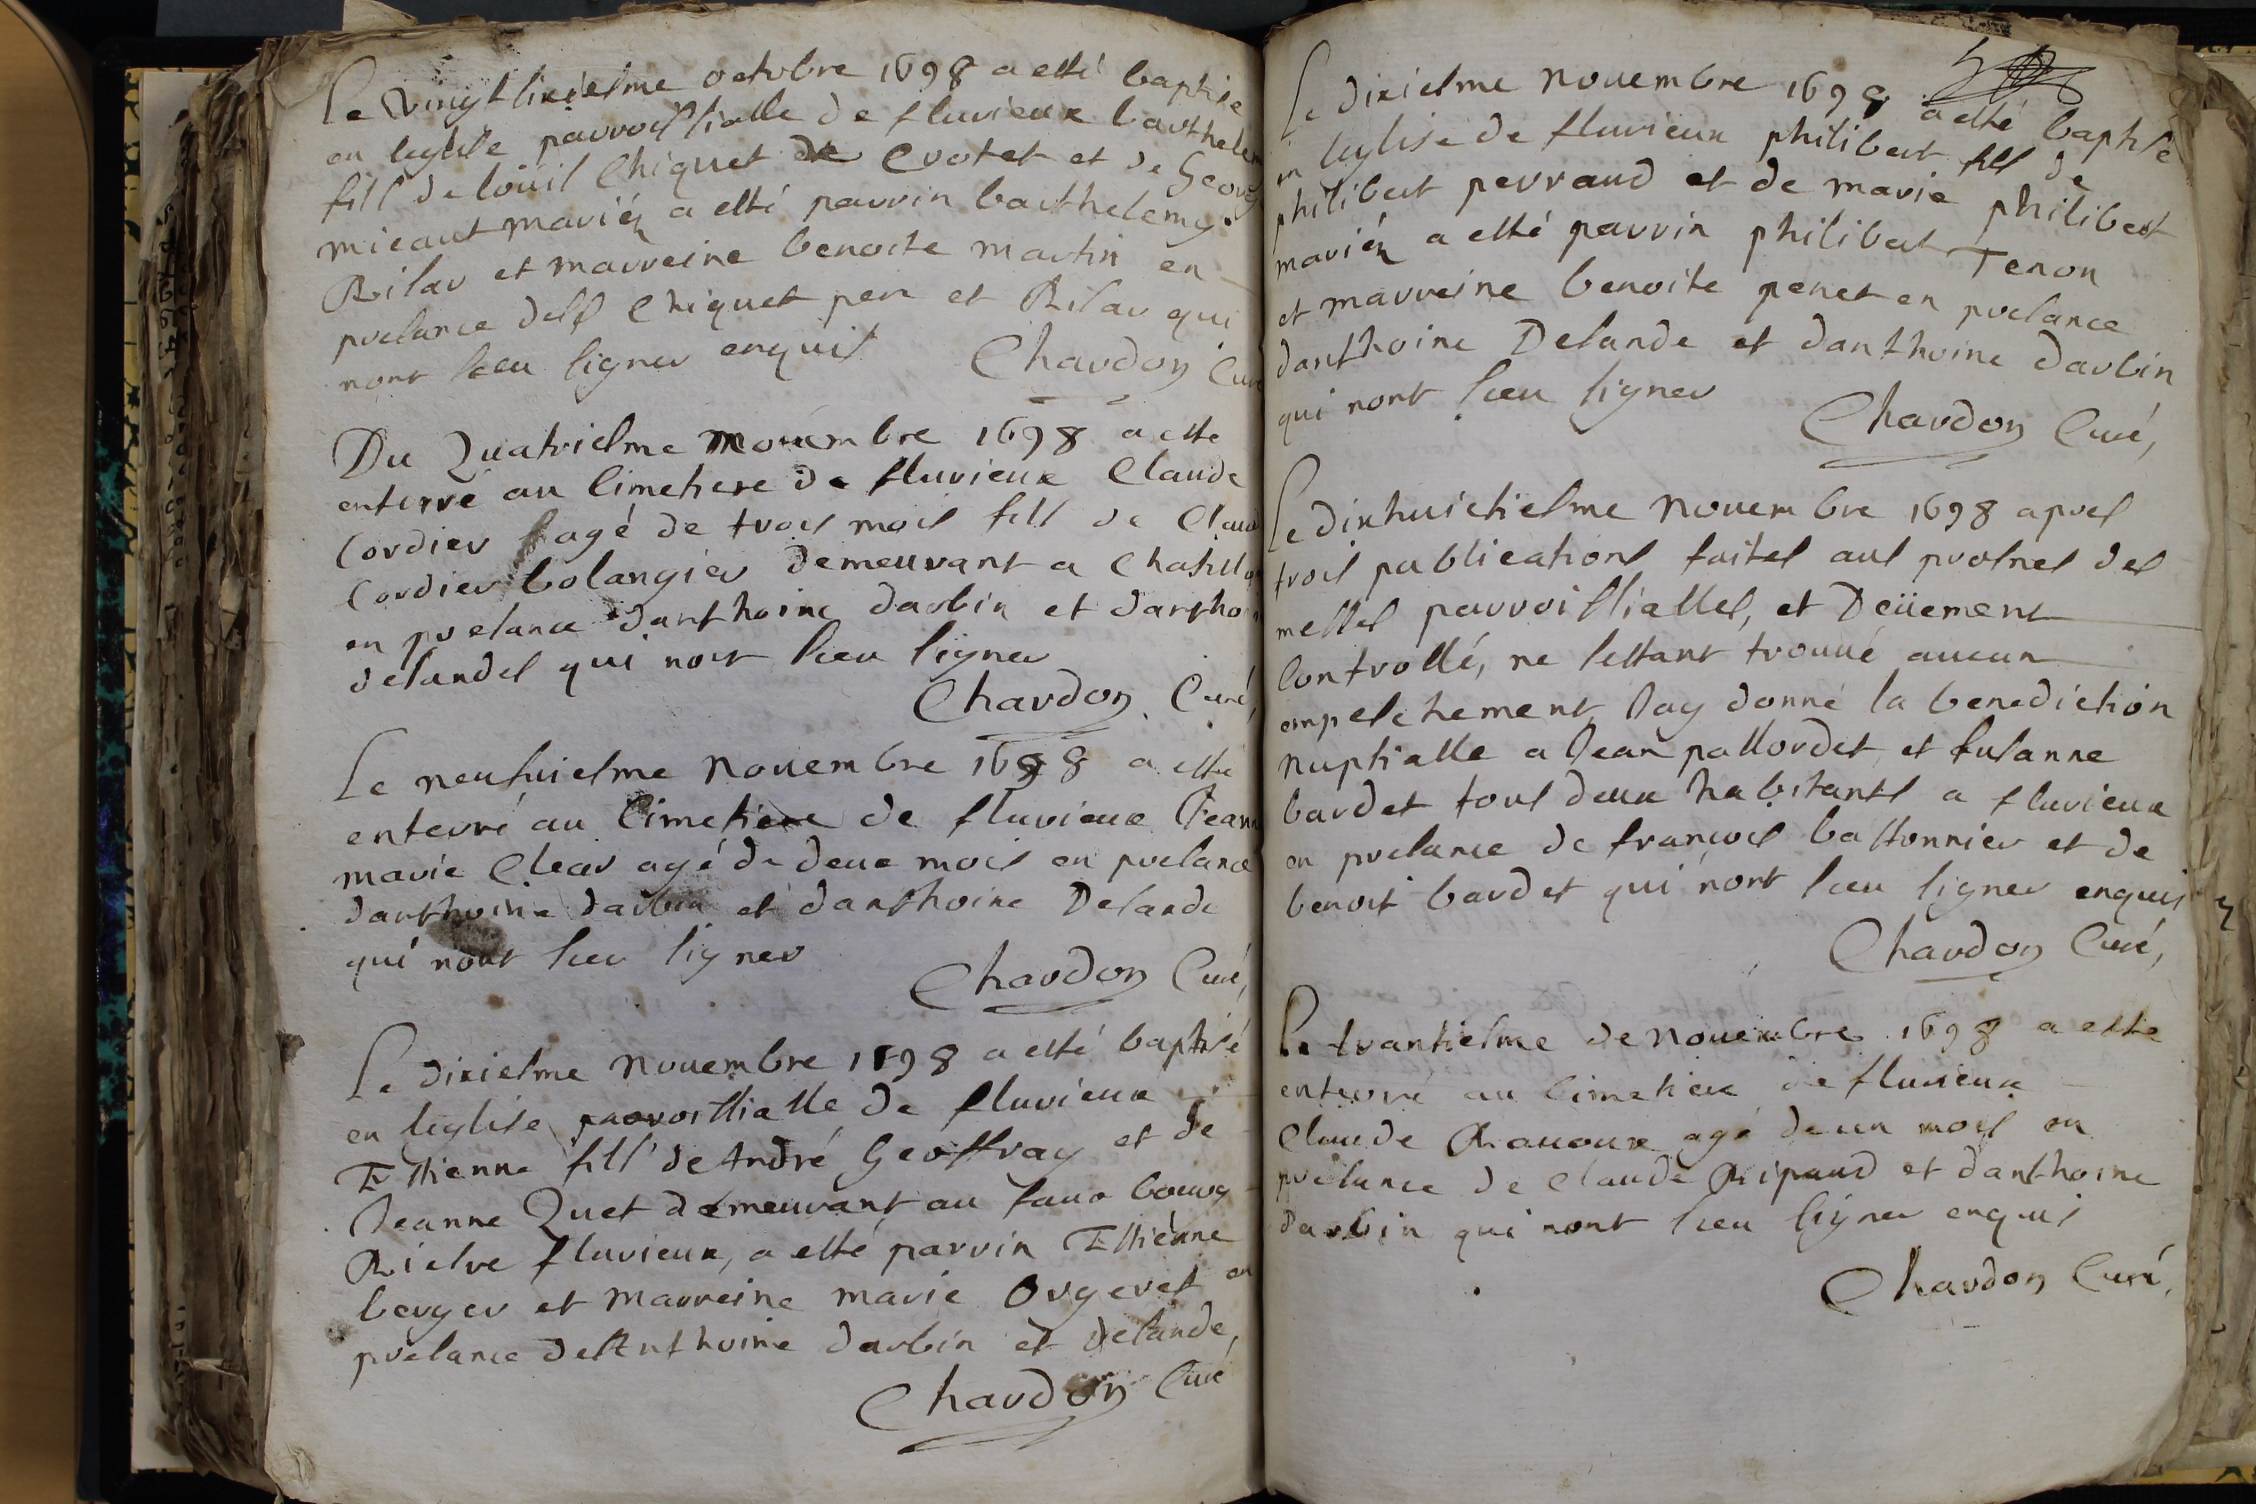 Le Vingtsixiesme octobre 1698 a esté baptise
en leglise parroissialle de fluvieux barthelem
fils de louis Chiquet de Crotet et de Georg
micaut mariéz a esté parrin barthelemy
Rilar et marreine benoite martin en
presance dess Chiquet pere et Rilar qui
nont sceu signer enquis
Chardon Curé
Du Quatriesme novembre 1698 a este
enterré au Cimetiere de fluvieux Claude
Cordier agé de trois mois fils de Claud
Cordier bolangier demeurant a Chastill
en presance danthoine darbin et dantho
delandes qui nont sceu signer
Chardon Curé,
Le neufviesme novembre 1698 a esté
enterré au Cimetiere de fluvieux Jean
marie Clear agé de deux mois en presance
danthoine darbin et danthoine Delande
qui nont sceu signer
Chardon Curé,
Le dixiesme novembre 1698 a esté baptisé
en leglise parroissialle de fluvieux
Estienne fils de André Geoffray et de
Jeanne Quet demeurant au faux bourg
Riesre fluvieux, a esté parrin Estienne
berger et marreine marie Orgeret en
presance desAnthoine darbin et delande,
Chardon Curé
Le dixiesme novembre 1698 a esté baptisé
en leglise de fluvieux philibert fils de
philibert perraud et de marie philibert
mariéz a esté parrin philibert Tenon
et marreine benoite penet en presance
danthoine Delande et danthoine darbin
qui nont sceu signer
Chardon Curé,
Le dixhuictiesme novembre 1698 apres
trois publications faites aus prosnes des
messes parroissialles, et Deüement
Controllé, ne sestant trouué aucun
empeschement Jay donné la benediction
nuptialle a Jean pallordet et susanne
bardet tous deux habitants a fluvieux
en presance de françois bastonnier et de
benoit bardet qui nont sceu signer enquis
Chardon Curé,
Le trantiesme de novembre 1698 a esté
enterré au Cimetiere de fluvieux
Claude Rauoux agé deun mois en
presance de Claude Ripaud et danthoine
darbin qui nont sceu signer enquis
Chardon Curé,